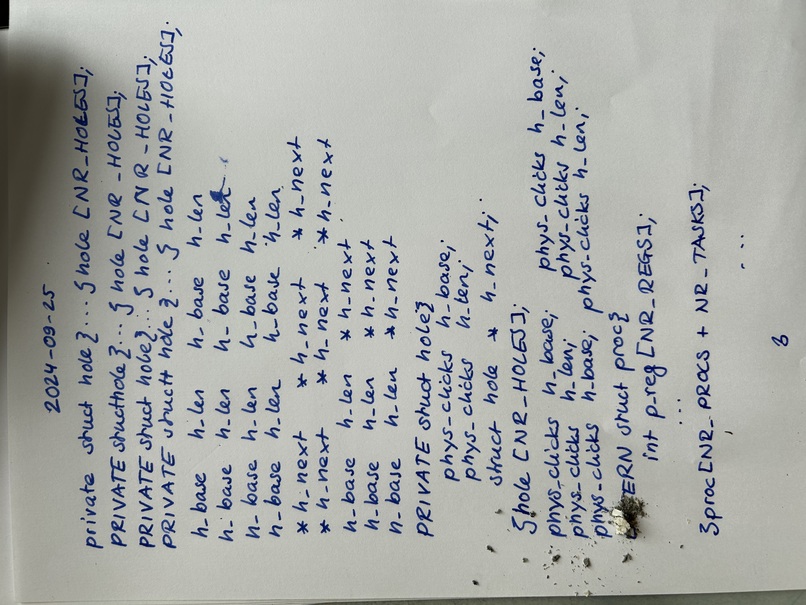 2024-09-25
private struct hole {... } hole [NR_HOLES];
PRIVATE structhole {... } hole [NR_HOLES];
PRIVATE struct hole{... } hole [NR_HOLES];
PRIVATE structt hole {... } hole [NR_HOLES];
h_base h_len h_base h_len
h_base h_len h_base h_len
h_base h_len h_base h_len
h_base h_len h_base h_len
* h_next * h_next * h_next
* h_next * h_next * h_next
h_base h_len * h_next
h_base h_len * h_next
h_base h_len * h_next
PRIVATE struct hole{
phys_clicks h_base;
phys_clicks h_len;
struct hole * h_next;
}hole [NR_HOLES];
phys_clicks h_base; phys_clicks h_base;
phys_clicks h_len; phys_clicks h_len;
phys_clicks h_base; phys_clicks h_len;
struct proc{
int p_reg [NR_REGS];
...
}proc[NR_PROCS + NR_TASKS];
...
3